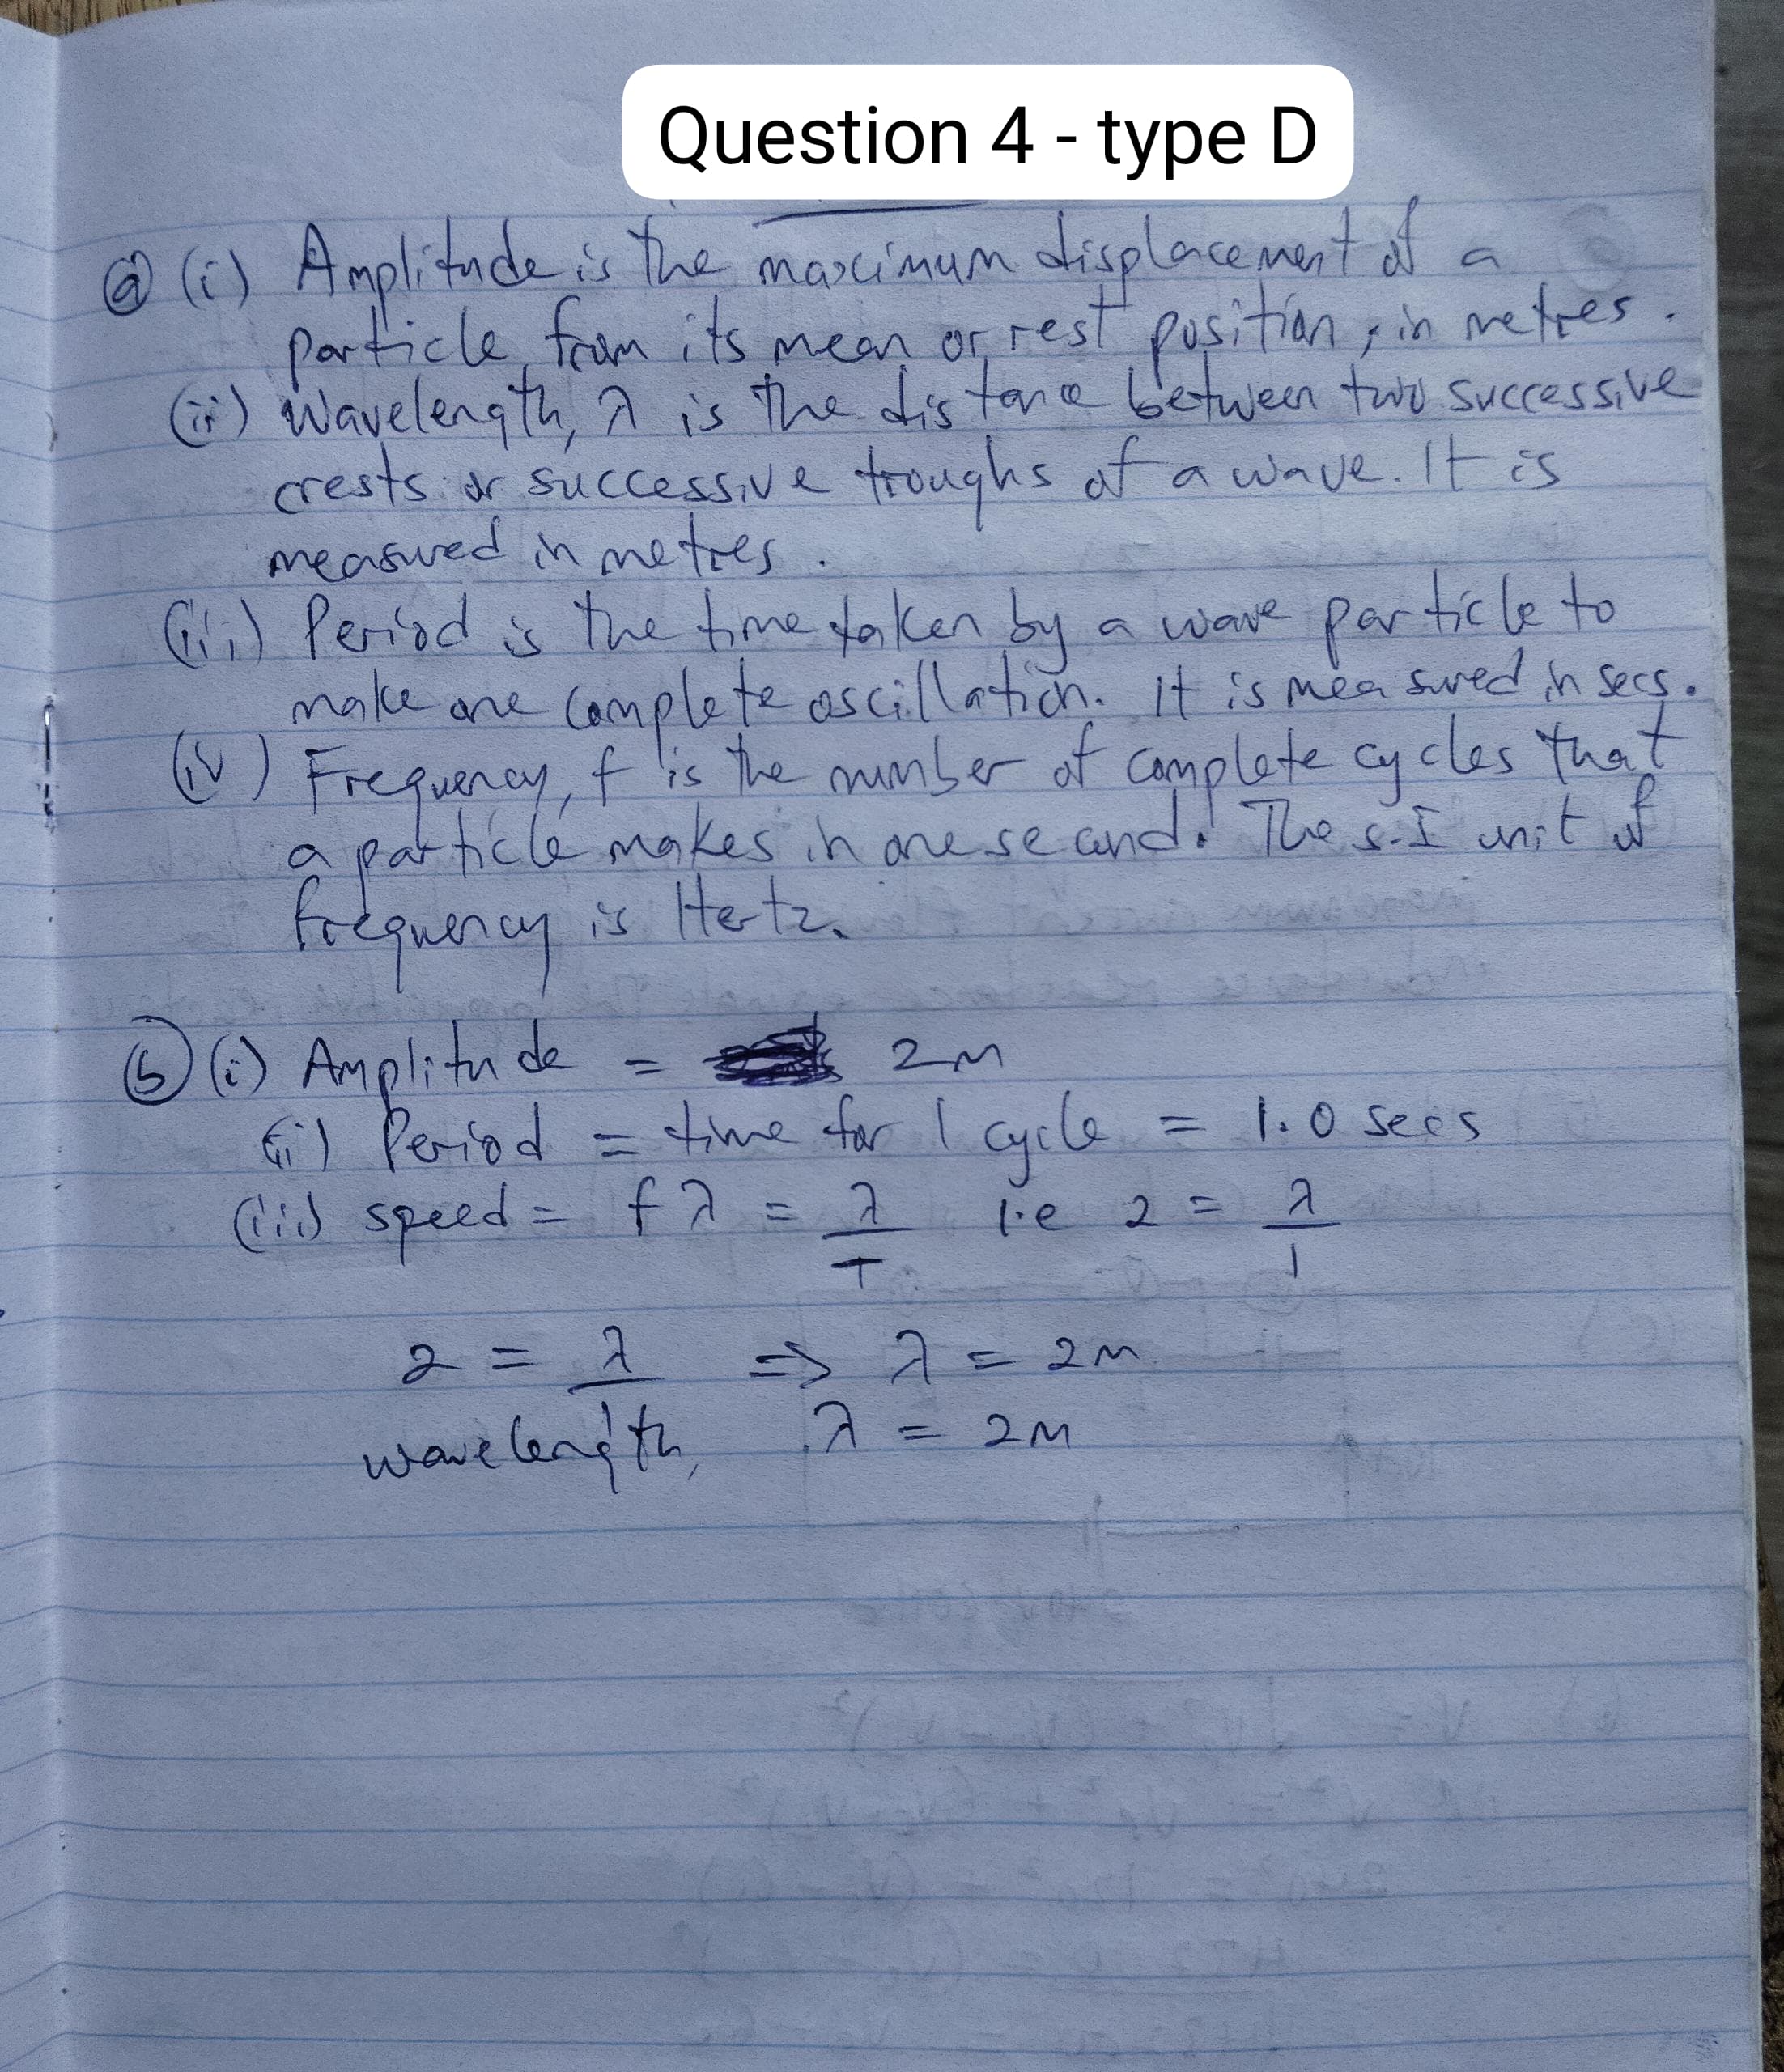 Question 4 - type D
ⓐ (i) Amplitude is the maximum displacement of a
particle from its mean or rest position, in metres.
(ii) Wavelength, λ is the distance between two successive
crests or successive troughs of a wave. It is
measured in metres.
(iii) Period is the time taken by a wave particle to
make one complete oscillation. It is measured in secs.
(iv) Frequency, f is the number of complete cycles that
a particle makes in one second. The S.I unit of
frequency is Hertz.
ⓑ (i) Amplitude = 2m
(ii) Period = time for 1 cycle = 1.0 secs
(iii) speed = fλ = λ/T i.e 2 = λ/1
2 = λ/1 => λ = 2m
wavelength, λ = 2m